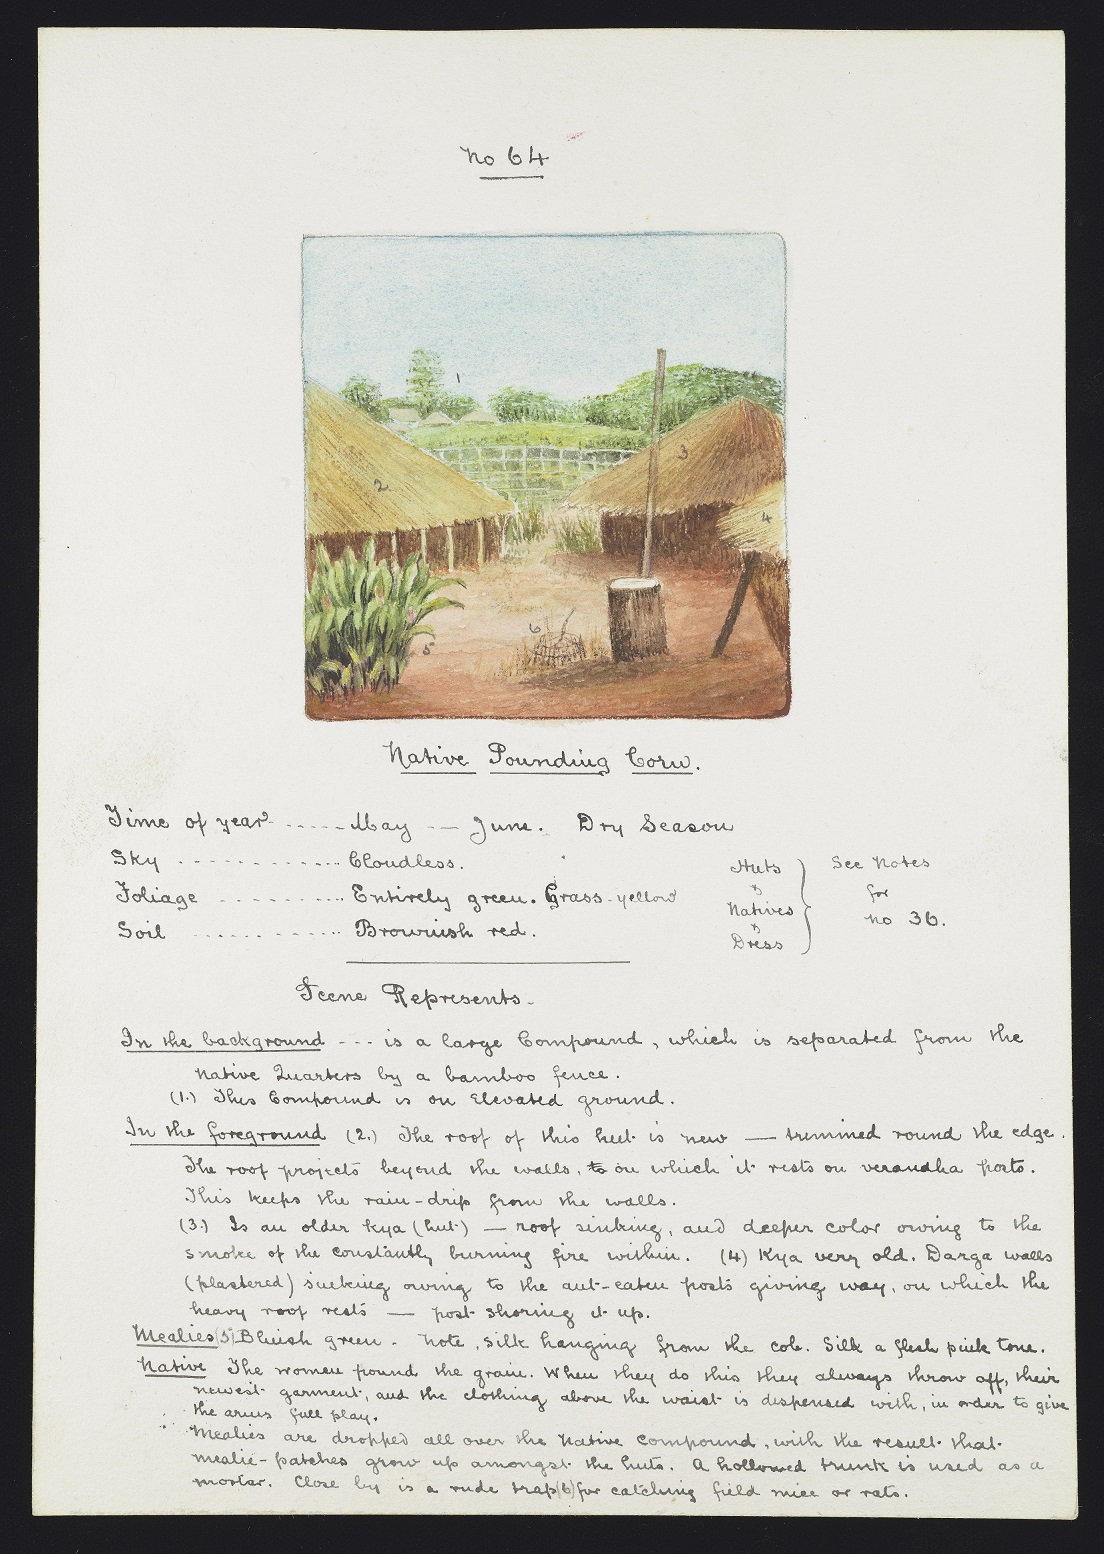 No 64
1
2
3
4
5
6
Native Pounding Corn.
Time of year ..... May — June. Dry Season
Sky ............ Cloudless.
Foliage .......... Entirely green. Grass-yellow
Soil ............ Brownish red.
Huts
&
Natives
&
Dress
See Notes
for
no 36.
Scene Represents.
In the background --- is a large Compound, which is separated from the
Native Quarters by a bamboo fence.
(1.) This Compound is on Elevated ground.
In the foreground (2.) The roof of this hut is new — trimmed round the edge.
The roof projects beyond the walls, to on which it rests on verandha posts.
This keeps the rain-drip from the walls.
(3.) Is an older Kya (hut) — roof sinking, and deeper color owing to the
smoke of the constantly burning fire within. (4) Kya very old. Darga walls
(plastered) sinking owing to the ant-eaten posts giving way, on which the
heavy roof rests — post shoring it up.
Mealies (5) Bluish green. Note, silk hanging from the cob. Silk a flesh pink tone.
Native The women pound the grain. When they do this they always throw off, their
newest garment, and the clothing above the waist is dispensed with, in order to give
the arms full play.
Mealies are dropped all over the Native Compound, with the result that
mealie-patches grow up amongst the huts. A hollowed trunk is used as a
mortar. Close by is a rude trap (6) for catching field mice or rats.